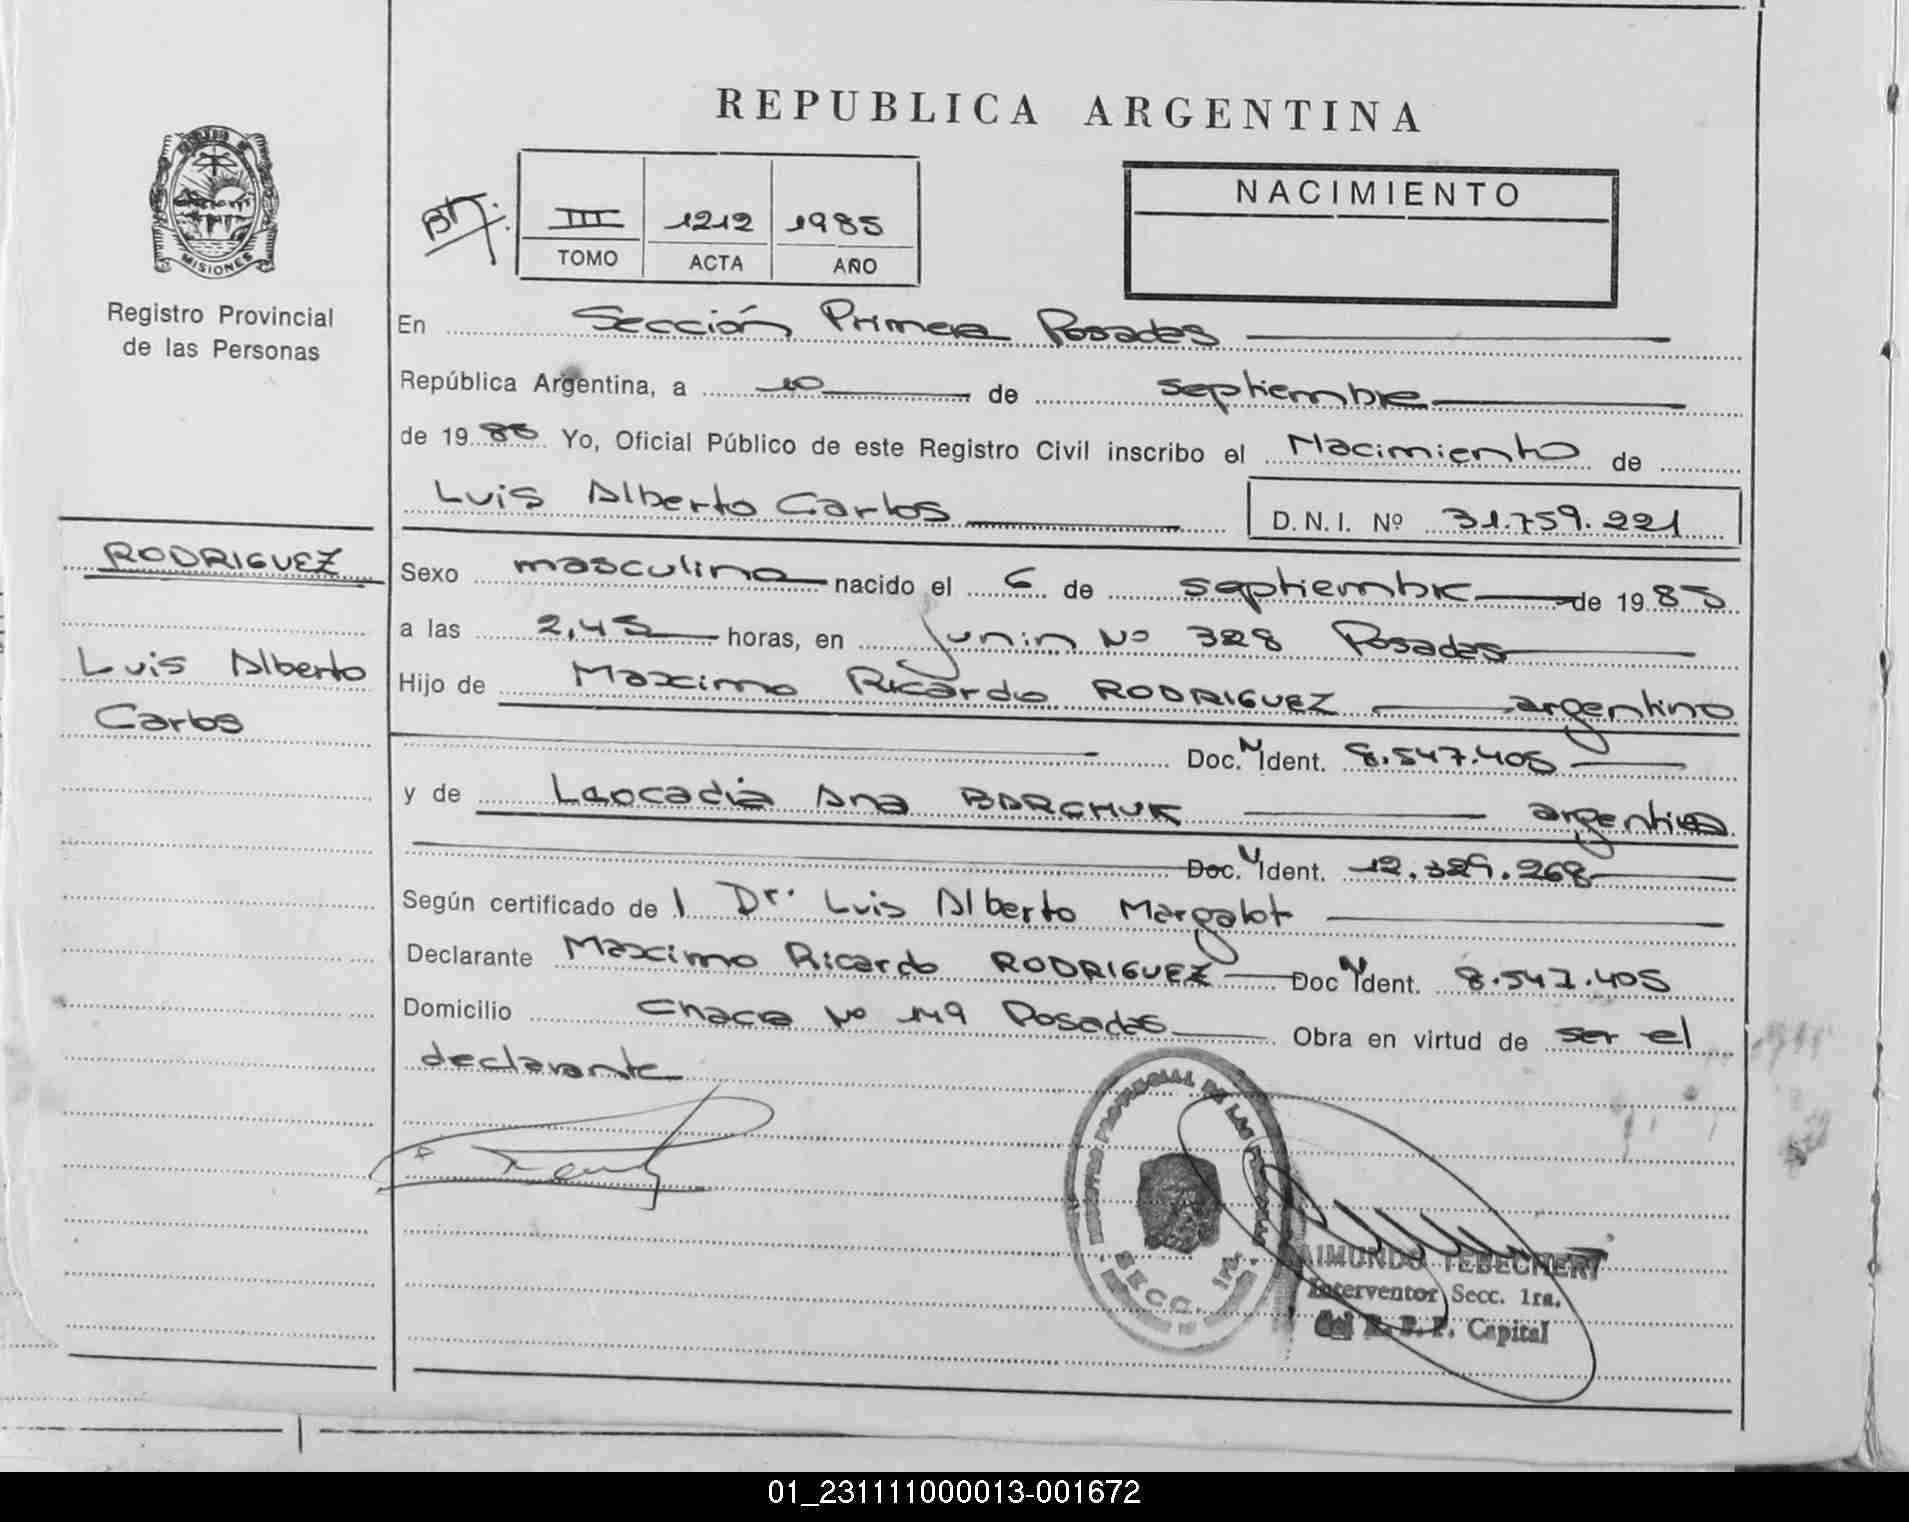 REPUBLICA ARGENTINA
MISIONES
Registro Provincial
de las Personas
III 1212 1985
TOMO ACTA AÑO
NACIMIENTO
En Sección Primera Posadas
República Argentina, a 10 de septiembre
de 1985 Yo, Oficial Público de este Registro Civil inscribo el Nacimiento de
Luis Alberto Carlos D.N.I. Nº 31.759.221
RODRIGUEZ
Luis Alberto
Carlos
Sexo masculino nacido el 6 de septiembre de 1985
a las 2,45 horas, en Junin Nº 328 Posadas
Hijo de Maximo Ricardo RODRIGUEZ argentino
Doc. N Ident. 8.547.405
y de Leocadia Ana BARCHUK argentina
Doc. N Ident. 12.329.268
Según certificado de l Dr. Luis Alberto Margalot
Declarante Maximo Ricardo RODRIGUEZ Doc N Ident. 8.547.405
Domicilio Chacra Nº 149 Posadas Obra en virtud de ser el
declarante
REGISTRO PROVINCIAL DE LAS PERSONAS
SECC. 1ra.
RAIMUNDO TEBECHERI
Interventor Secc. 1ra.
del R. P. P. Capital
01_231111000013-001672